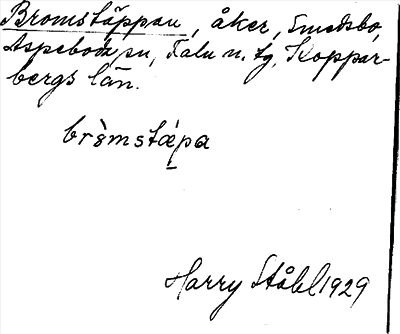 Bromstäppan, åker, Smedsbo,
Aspeboda sn, Falu n. tg, Koppar-
bergs län.
bròmstæ̀pa
Harry Ståhl 1929